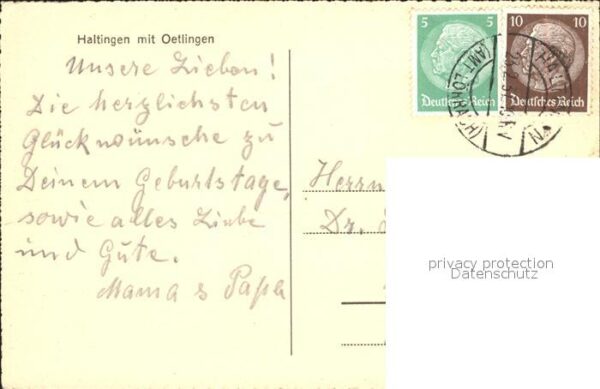 Haltingen mit Oetlingen
Unsere Lieben!
Die herzlichsten
Glückwünsche zu
Deinem Geburtstage,
sowie alles Liebe
und Gute.
Mama & Papa
5 5
Deutsches Reich
10 10
Deutsches Reich
Herrn
Dr.
privacy protection
Datenschutz